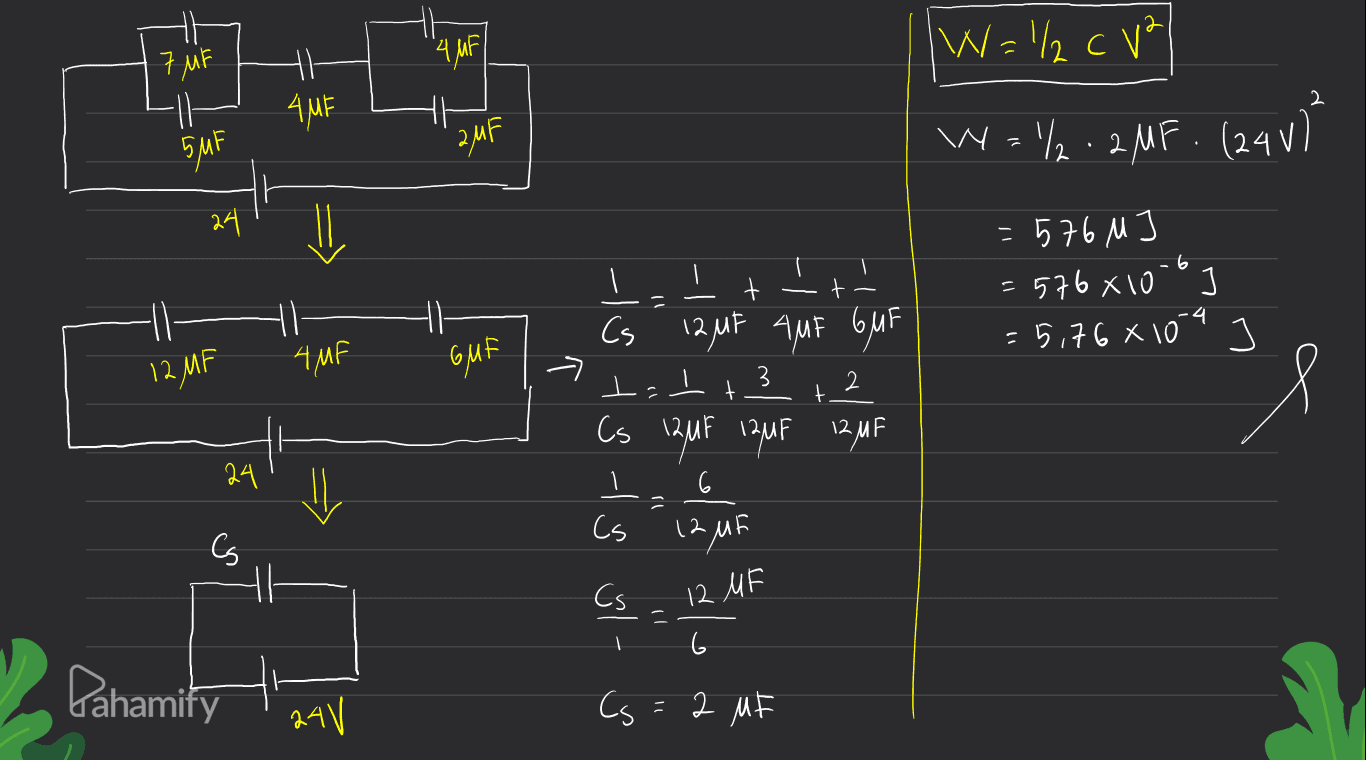 7 μF
5 μF
4 μF
4 μF
2 μF
24
⇓
12 μF
4 μF
6 μF
24
⇓
Cs
24V
1/Cs = 1/12 μF + 1/4 μF + 1/6 μF
→ 1/Cs = 1/12 μF + 3/12 μF + 2/12 μF
1/Cs = 6/12 μF
Cs/1 = 12 μF/6
Cs = 2 μF
W = 1/2 C V²
W = 1/2 . 2 μF . (24 V)²
= 576 μJ
= 576 x 10⁻⁶ J
= 5,76 x 10⁻⁴ J
Pahamify